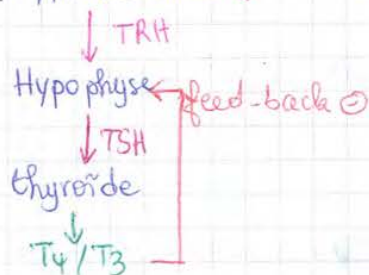 TRH
Hypophyse feed-back ⊖
TSH
thyroïde
T4 / T3